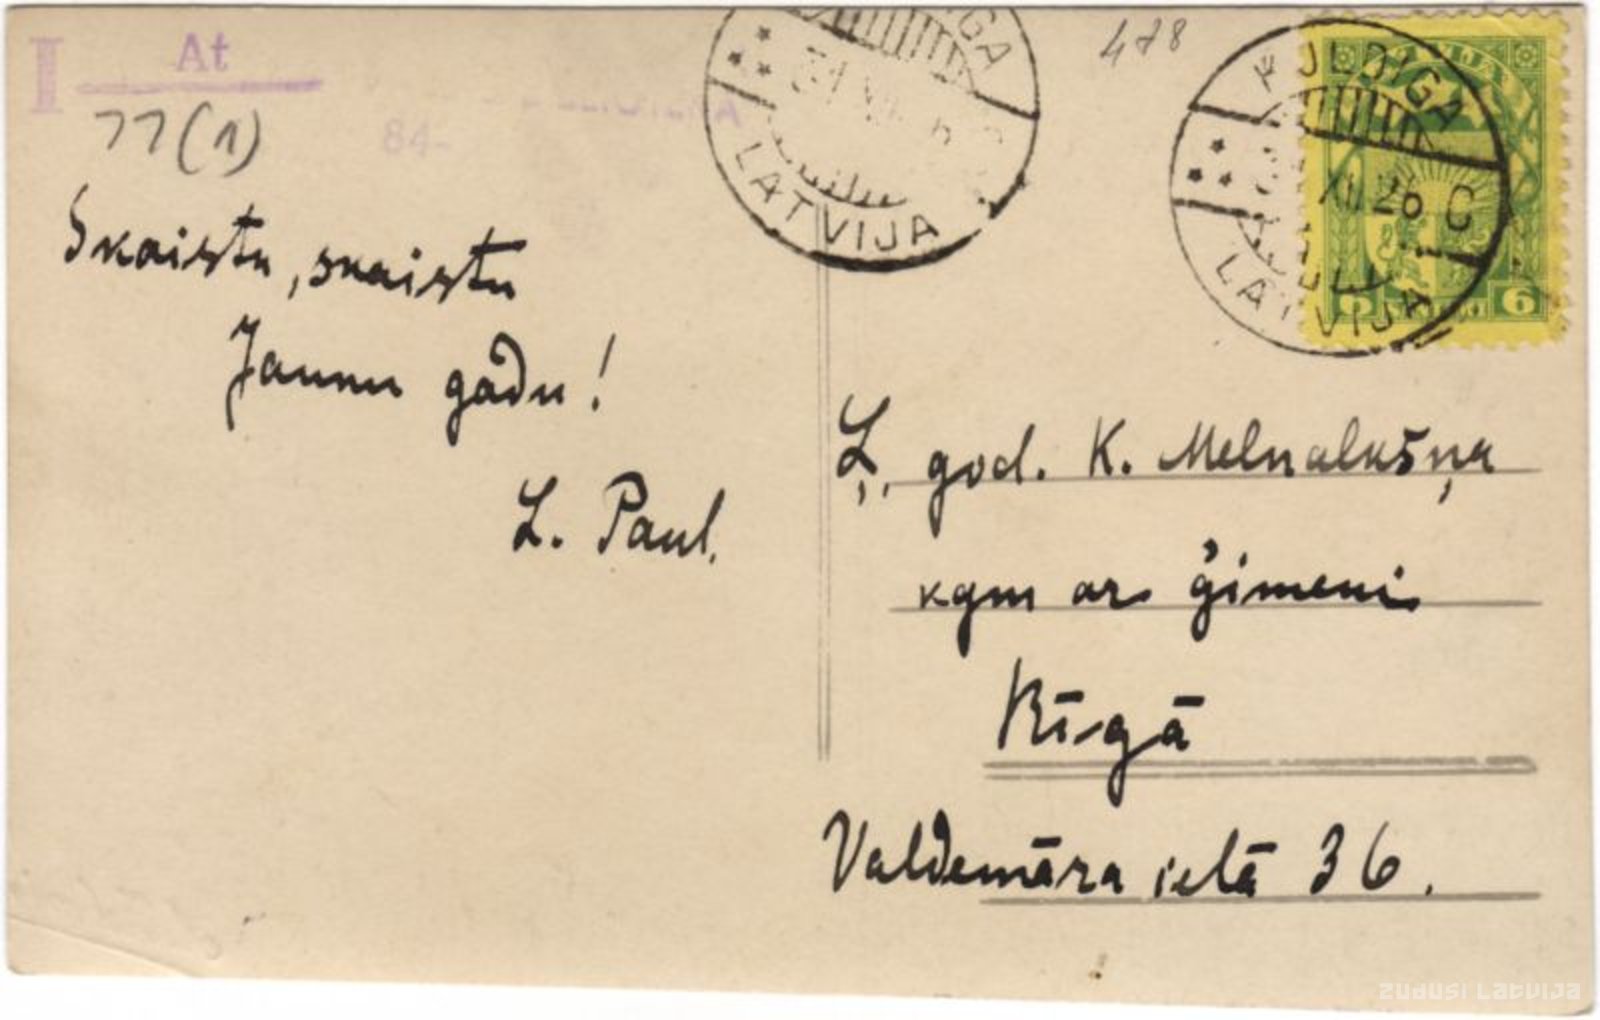 I
At
77(1)
84-
478
LATVIJA
KULDIGA
XII 26 C
LATVIJA
LATVIJA
6 6
Skaistu, skaistu
Jaunu gadu!
L. Paul.
Ļ. god. K. Melnalkšņa
kgm ar ģimeni
Rīgā
Valdemāra ielā 36.
ZUDUSI LATVIJA